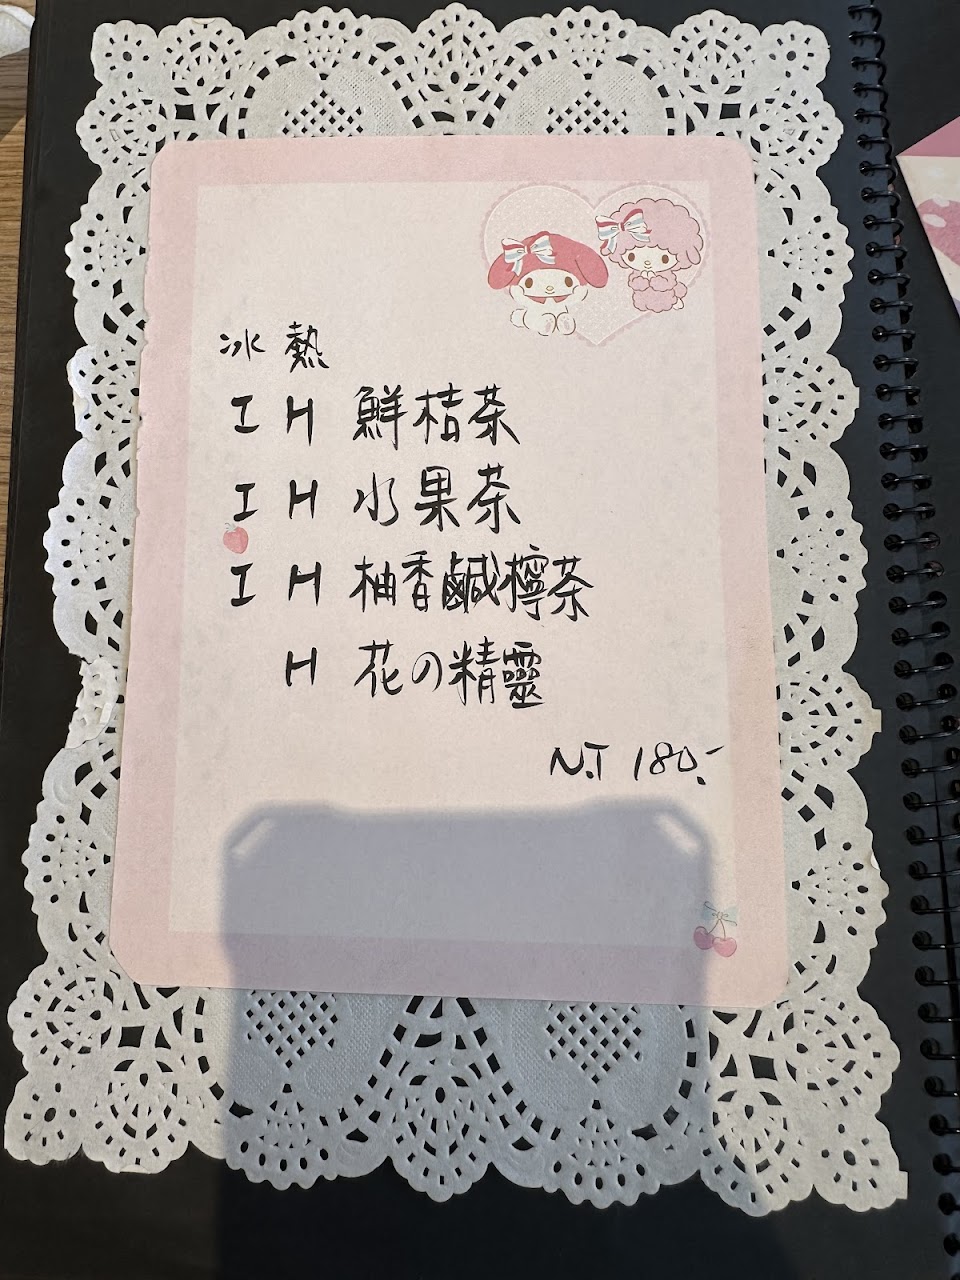 冰 熱
I H 鮮桔茶
I H 水果茶
I H 柚香鹹檸茶
H 花の精靈
N.T 180.-